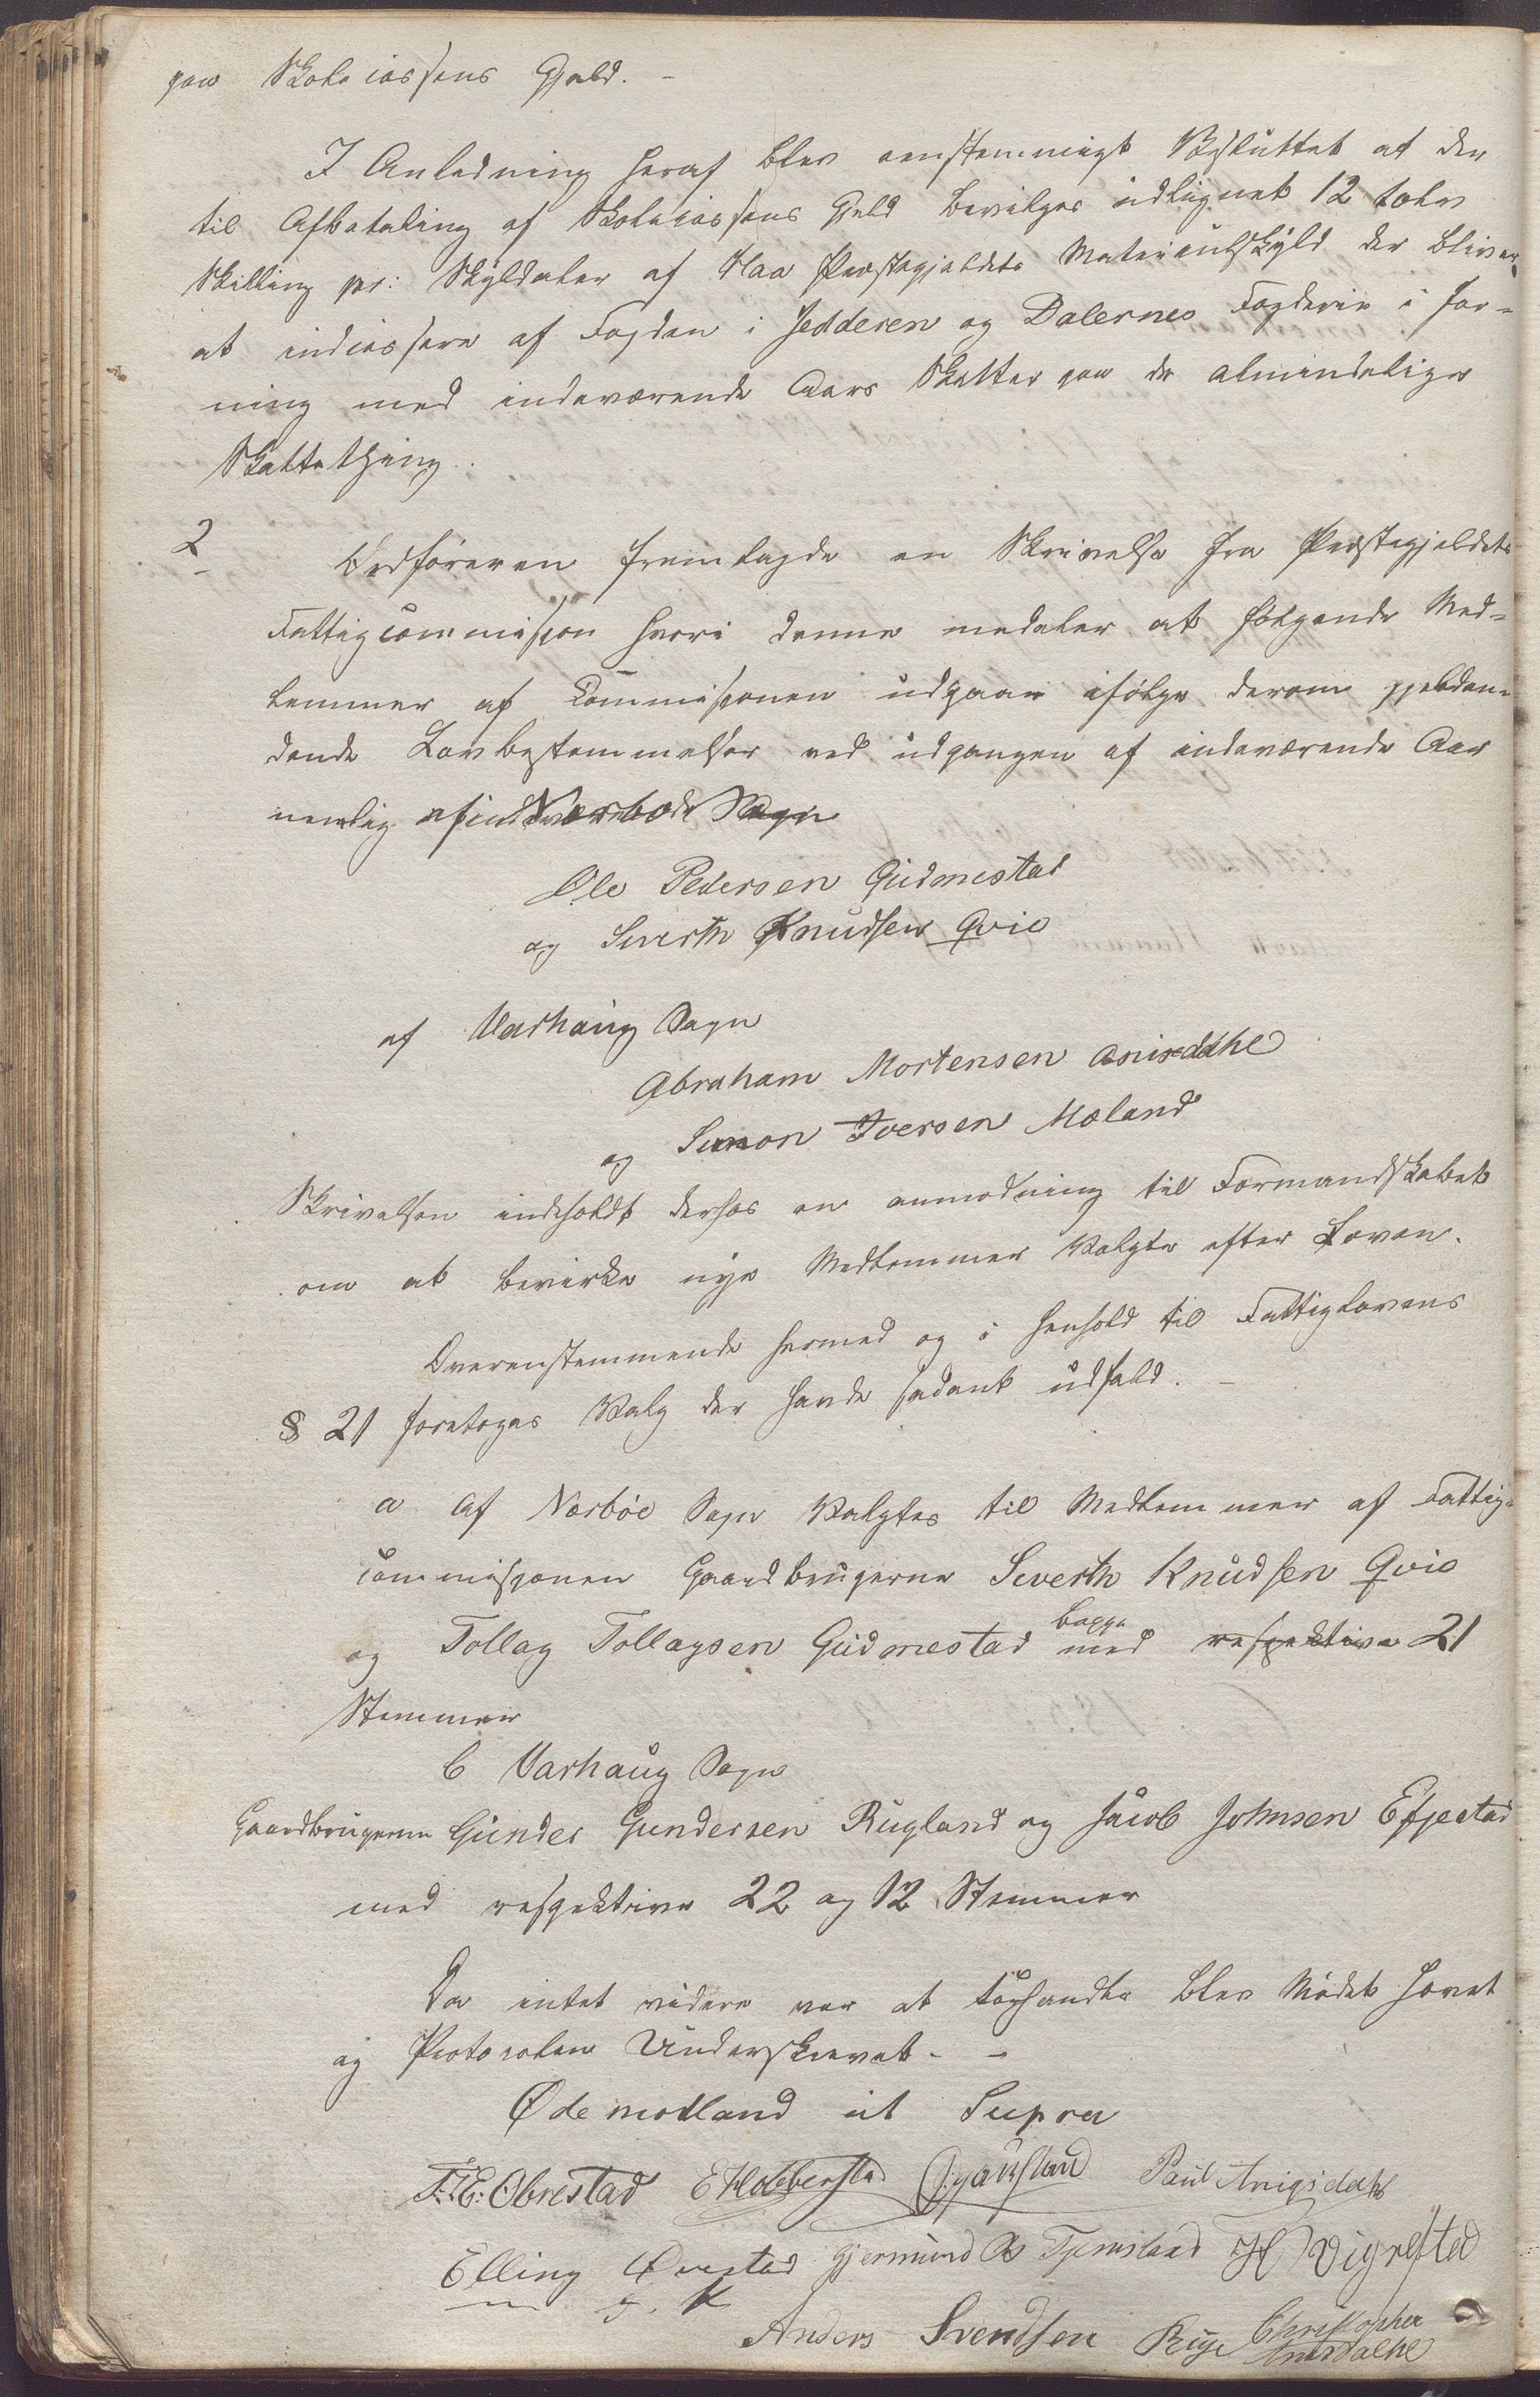 paa Skolecassens Gjæld. –
I Anledning heraf blev eenstemmigt Besluttet at der
til Afbetaling af Skolecassens Gjæld bevilges udlignet 12 tolv
Skilling pr: Skylddaler af Haa Præstegjældets Matriculskyld der bliver
at indcassere af Fogden i Jedderen og Dalernes Fogderie i For-
ning med indeværende Aars Skatter paa de almindelige
Skattething.
2
Ordføreren fremlagde en Skrivelse fra Præstegjeldets
Fattigcommission hvori denne meddeler at følgende Med-
lemmer af Commissionen udgaar ifølge derom gjelden-
dende Lovbestemmelser ved udgangen af indeværende Aar
nemlig af Nærboe Sogn
Ole Pedersen Gudmestad
og Siverth Knudsen Qvie
af Varhaug Sogn
Abraham Mortensen
og Simon Iversen Mæland
Skrivelsen indeholdt derhos en anmodning til Formandskabet
om at bevirke nye Medlemmer Valgte efter Loven.
Overenstemmende hermed og i Henhold til Fattiglovens
§ 21 foretoges Valg der havde sadant udfald. –
a af Nærbøe Sogn Valgtes til Medlemmer af Fattig-
commissionen Gaardbrugerne Siverth Knudsen Qvie
og Tollag Tollagsen Gudmestad begge med respektive 21
Stemmer
b Varhaug Sogn
Gaardbrugerne Gunder Gundersen Rugland og Jacob Johnsen Efjestad
med respektive 22 og 12 Stemmer
Da intet videre var at forhandle blev Mødet hævet
og Protocolen Underskrevet. –
Ødemotland ut Supra
T. E. Obrestad E Hobberstad Paul Anigsdahl
Elling Øvestad Gjermund As Tjemsland H Vigrestad
m. f. P.
Anders Svendsen Rüge Christopher
Anisdalhe